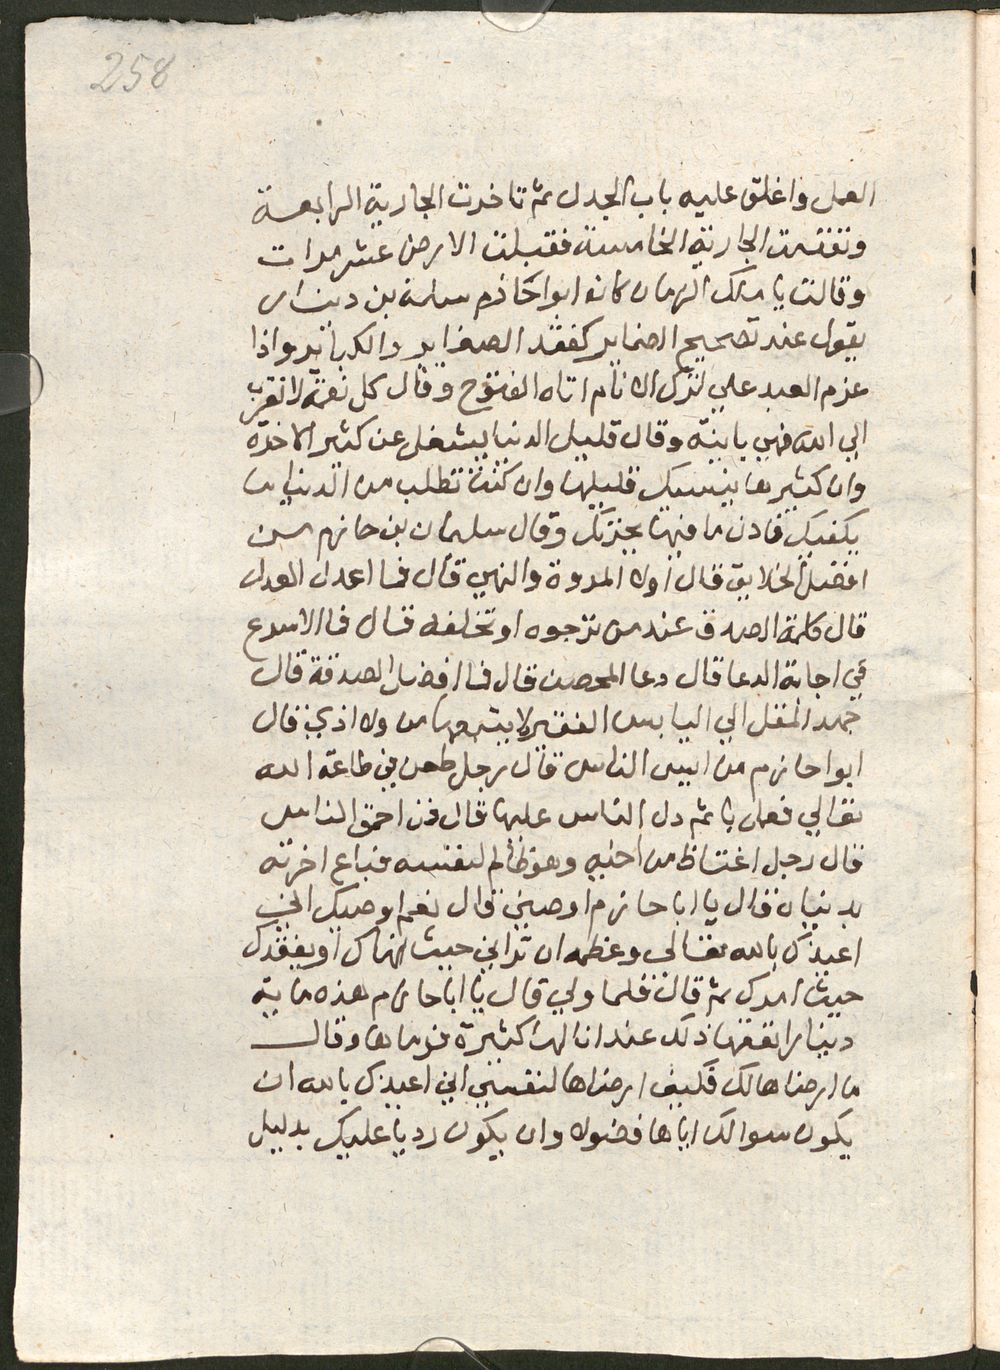 258
العمل واغلق عليه باب الجدل ثم تاخرت الجارية الرابعة
وتقدمت الجارية الخامسة فقبلت الارض عشر مرات
وقالت يا ملك الزمان كان ابو احاذم سلمة بن دينار
يقول عند تصحيح الضماير كففد الصغاير والكباير واذا
عزم العبد علي لترك الاثام اتاه الفتوح وقال كل نعمة لا تقرب
الي الله فهي بلية وقال قليل الدنيا يشغل عن كثير الاخرة
وان كثيرها ينسيك قليلها وان كنت تطلب من الدنيا ما
يكفيك فادن ما فيها يجزيك وقال سليمان بن حازم من
افضل الخلايق قال اولا المروة والنهي قال فما اعدل العدل
قال كلمة الصدق عند من ترجوه او تخلفه قال فما الاسرع
في اجابة الدعا قال دعا المحصن قال فما افضل الصدقة قال
جهد المقل الي اليابس الفقير لا يتبعها من ولا اذي قال
ابو احازم من اليس الناس قال رجل طعن في طاعة الله
تعالي فعمل بها ثم دل الناس عليها قال فمن احمق الناس
قال رجل اغتاظ من اخيه وهو ظالم لنفسه فباع اخرته
بدنياه قال يا ابا حازم اوصيني قال نعم اوصيك اني
اعيذك بالله تعالي وعظمه ان تراني حيث انهاك او يفقدك
حيث امرك ثم قال فلما ولي قال يا ابا حازم هذه ماية
دينار انفقها ذلك عندنا الها كثيرة فرماها وقال
ما ارضاها لك فكيف ارضاها لنفسي اني اعيذك بالله ان
يكون سوالك اياها فضولا وان يكون رديا عليك بدليل